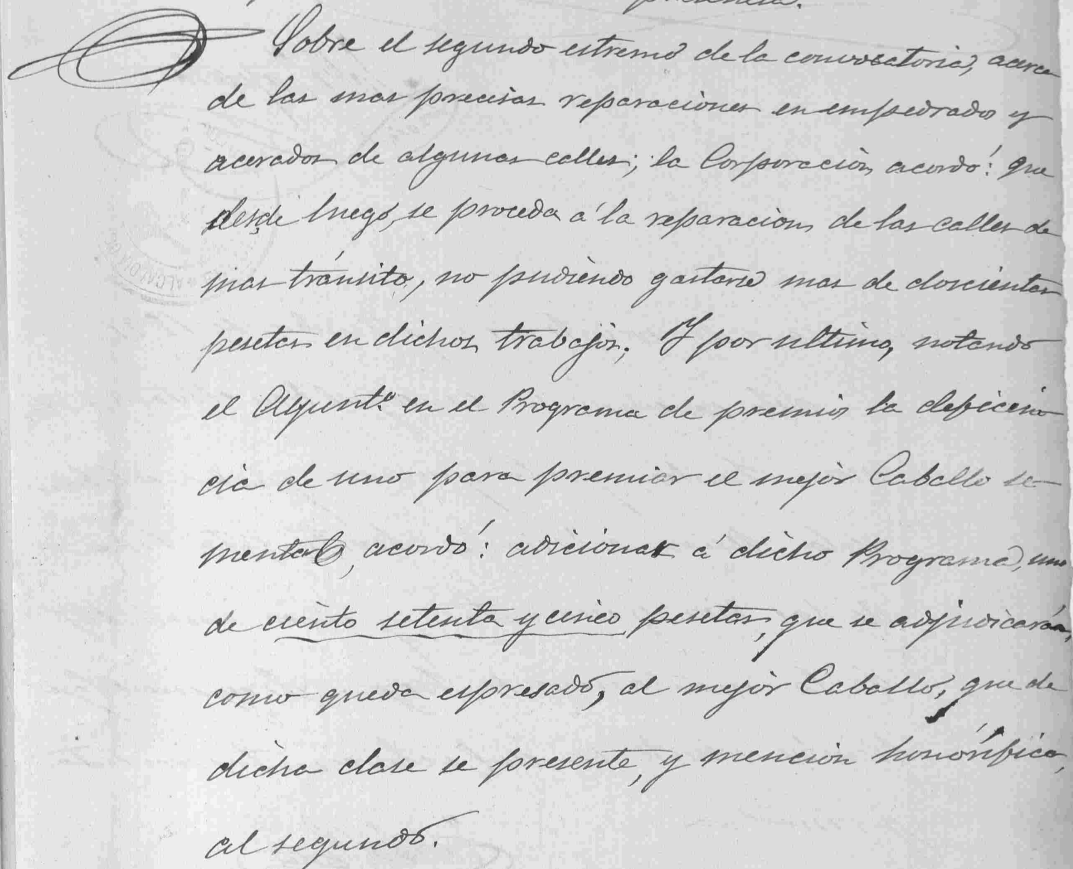 Sobre el segundo estremo de la convocatoria, acerca
de las mas precisas reparaciones en empedrado y
acerados de algunas calles; la Corporación acordó: que
desde luego, se proceda á la reparacion, de las calles de
mas tránsito, no pudiendo gastarse mas de doscientas
pesetas en dichos trabajos; Y por ultimo, notando
el Ayuntº en el Programa de premios la deficien
cia de uno para premiar el mejor Caballo se-
mental, acordó: adicionar á dicho Programa, uno
de ciento setenta y cinco pesetas, que se adjudicarán,
como queda espresado, al mejor Caballo, que de
dicha clase se presente, y mención honórifica,
al segundo.